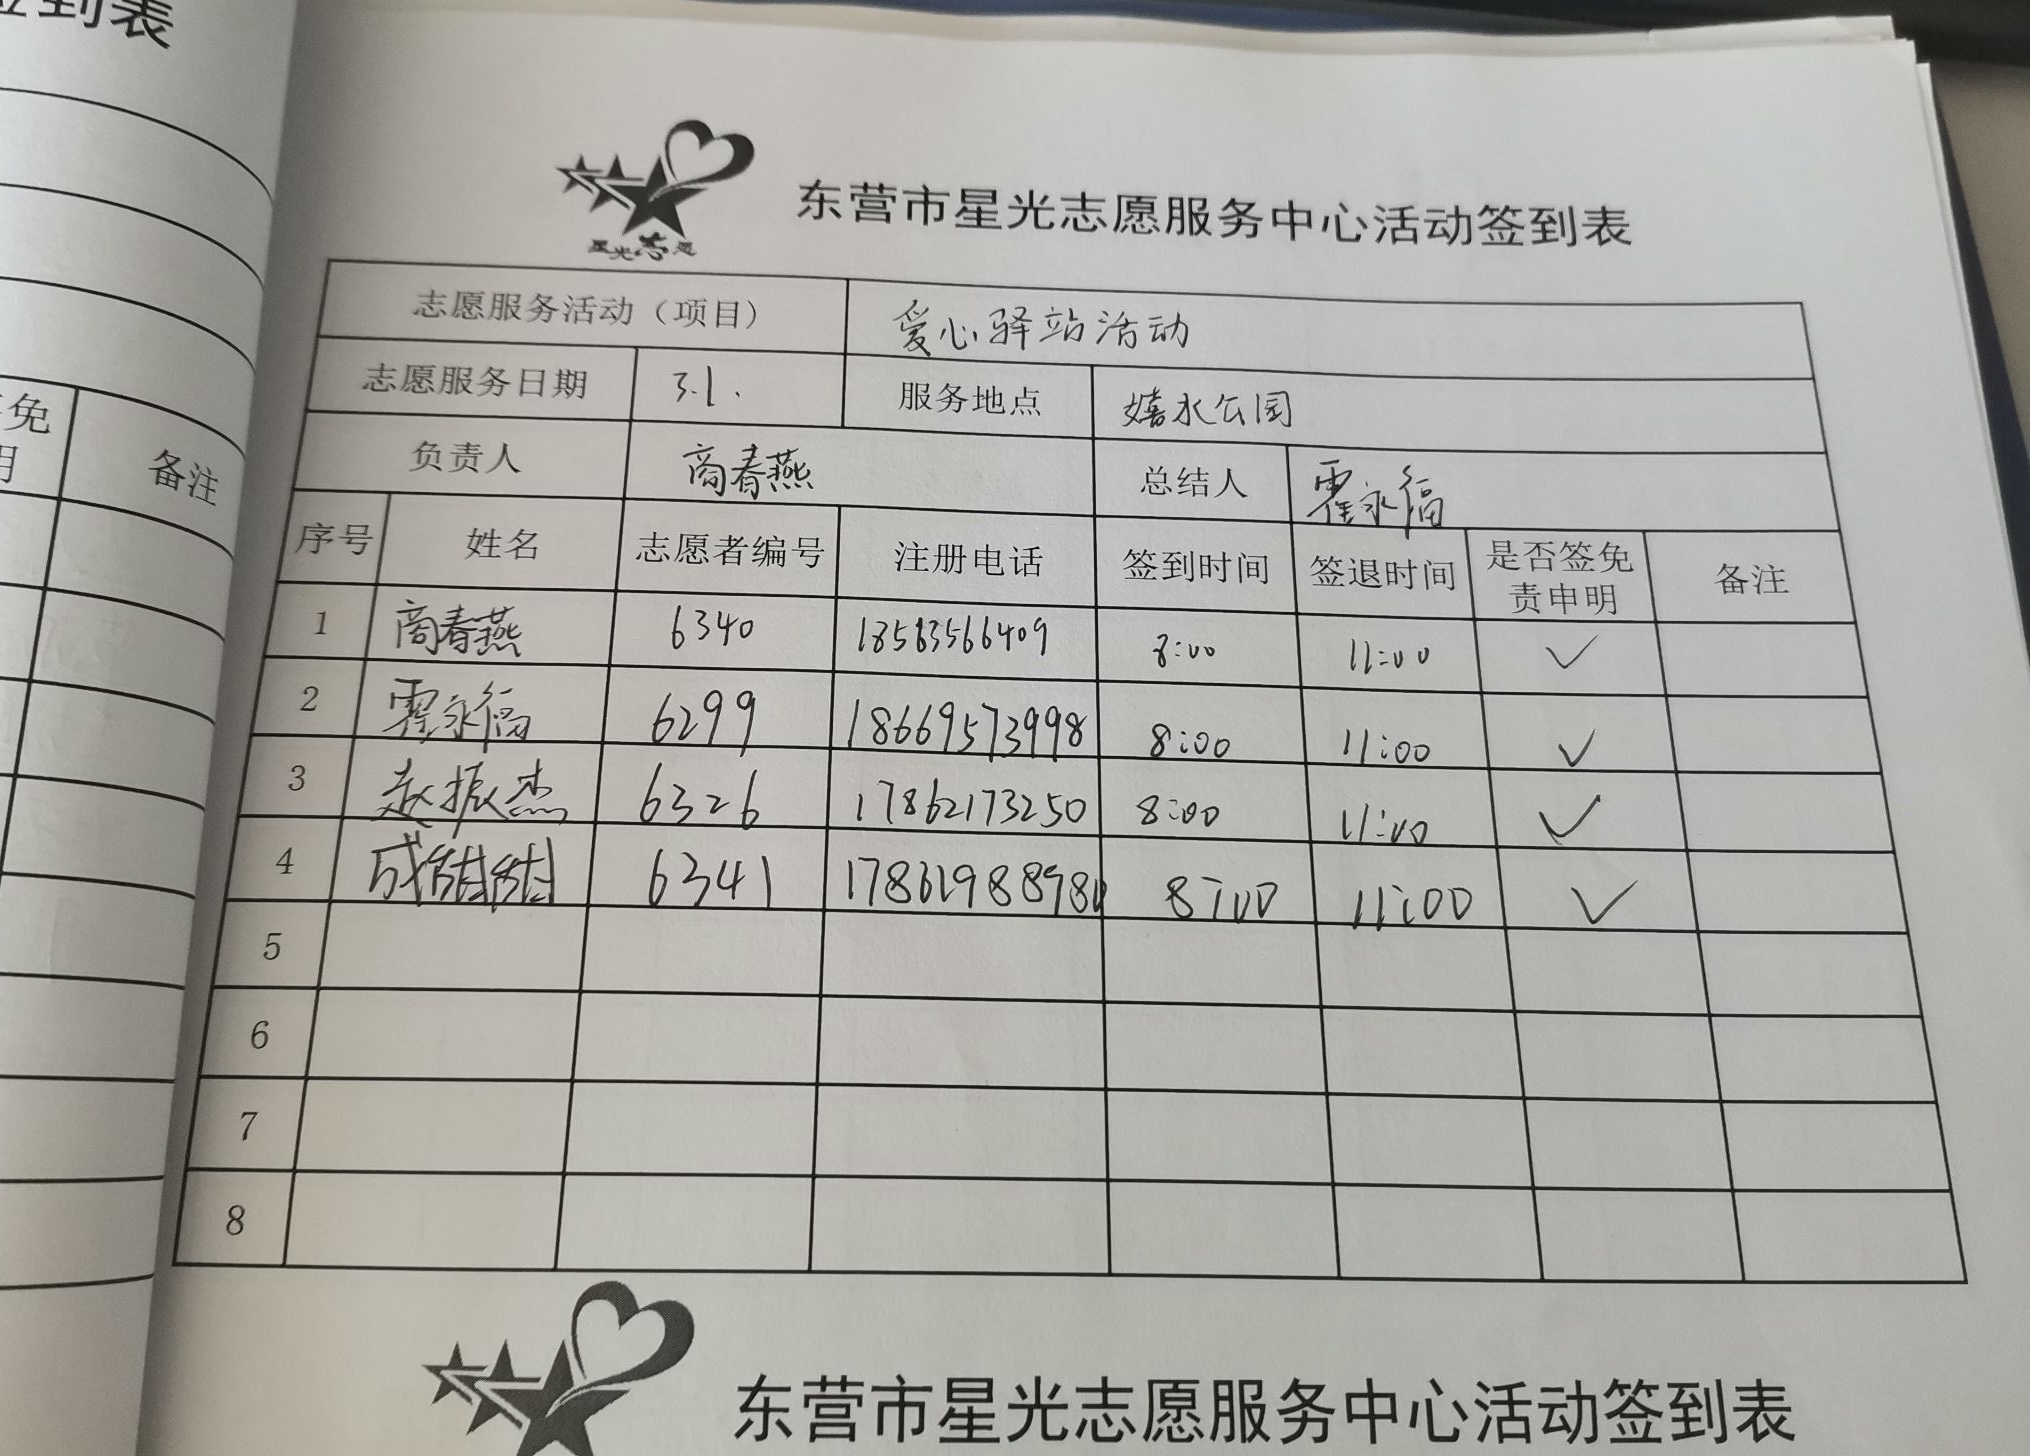 签到表
免
明
备注
星光志愿
东营市星光志愿服务中心活动签到表
志愿服务活动（项目） 爱心驿站活动
志愿服务日期 3.1. 服务地点 嬉水公园
负责人 商春燕 总结人 霍永福
序号 姓名 志愿者编号 注册电话 签到时间 签退时间 是否签免责申明 备注
1 商春燕 6340 18563566409 8:00 11:00 ✓
2 霍永福 6299 18669573998 8:00 11:00 ✓
3 赵振杰 6326 17862173250 8:00 11:00 ✓
4 成甜甜 6341 8:00 11:00 ✓
5
6
7
8
东营市星光志愿服务中心活动签到表